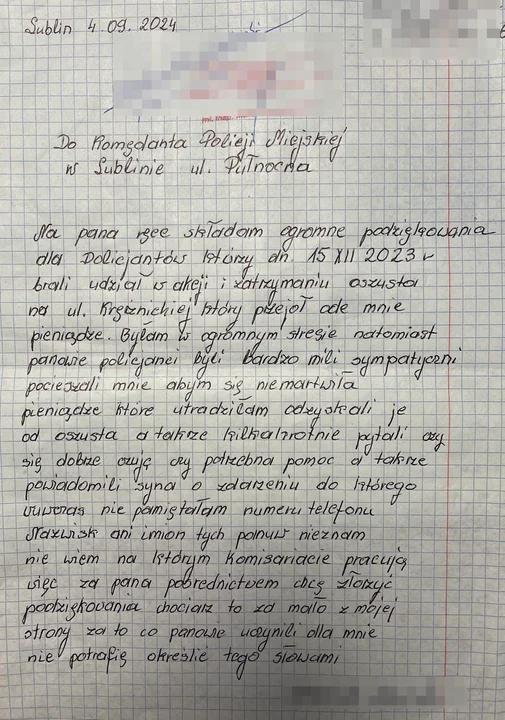 Lublin 4.09.2024
Do Komędanta Policji Miejskiej
w Lublinie ul. Pułnocna
Na pana ręce składam ogromne podziękowania
dla Policjantów którzy dn. 15 XII 2023 r
brali udział w akcji i zatrzymaniu oszusta
na ul. Krężnickiej który przejoł ode mnie
pieniądze. Byłam w ogromnym stresie natomiast
panowie policjanci byli bardzo mili sympatyczni
pocieszali mnie abym się niemartwiła
pieniądze które utradziłam odzyskali je
od oszusta a takrze kilkakrotnie pytali czy
się dobrze czują czy potrzebna pomoc a takrze
powiadomili syna o zdarzeniu do którego
wuwczas nie pamiętałam numeru telefonu
Nazwisk ani imion tych panuw nieznam
nie wiem na którym Komisariacie pracują
więc za pana pośrednictwem chcę złorzyć
podziękowania chociarz to za mało z mojej
strony za to co panowie uczynili dla mnie
nie potrafię określić tego słowami